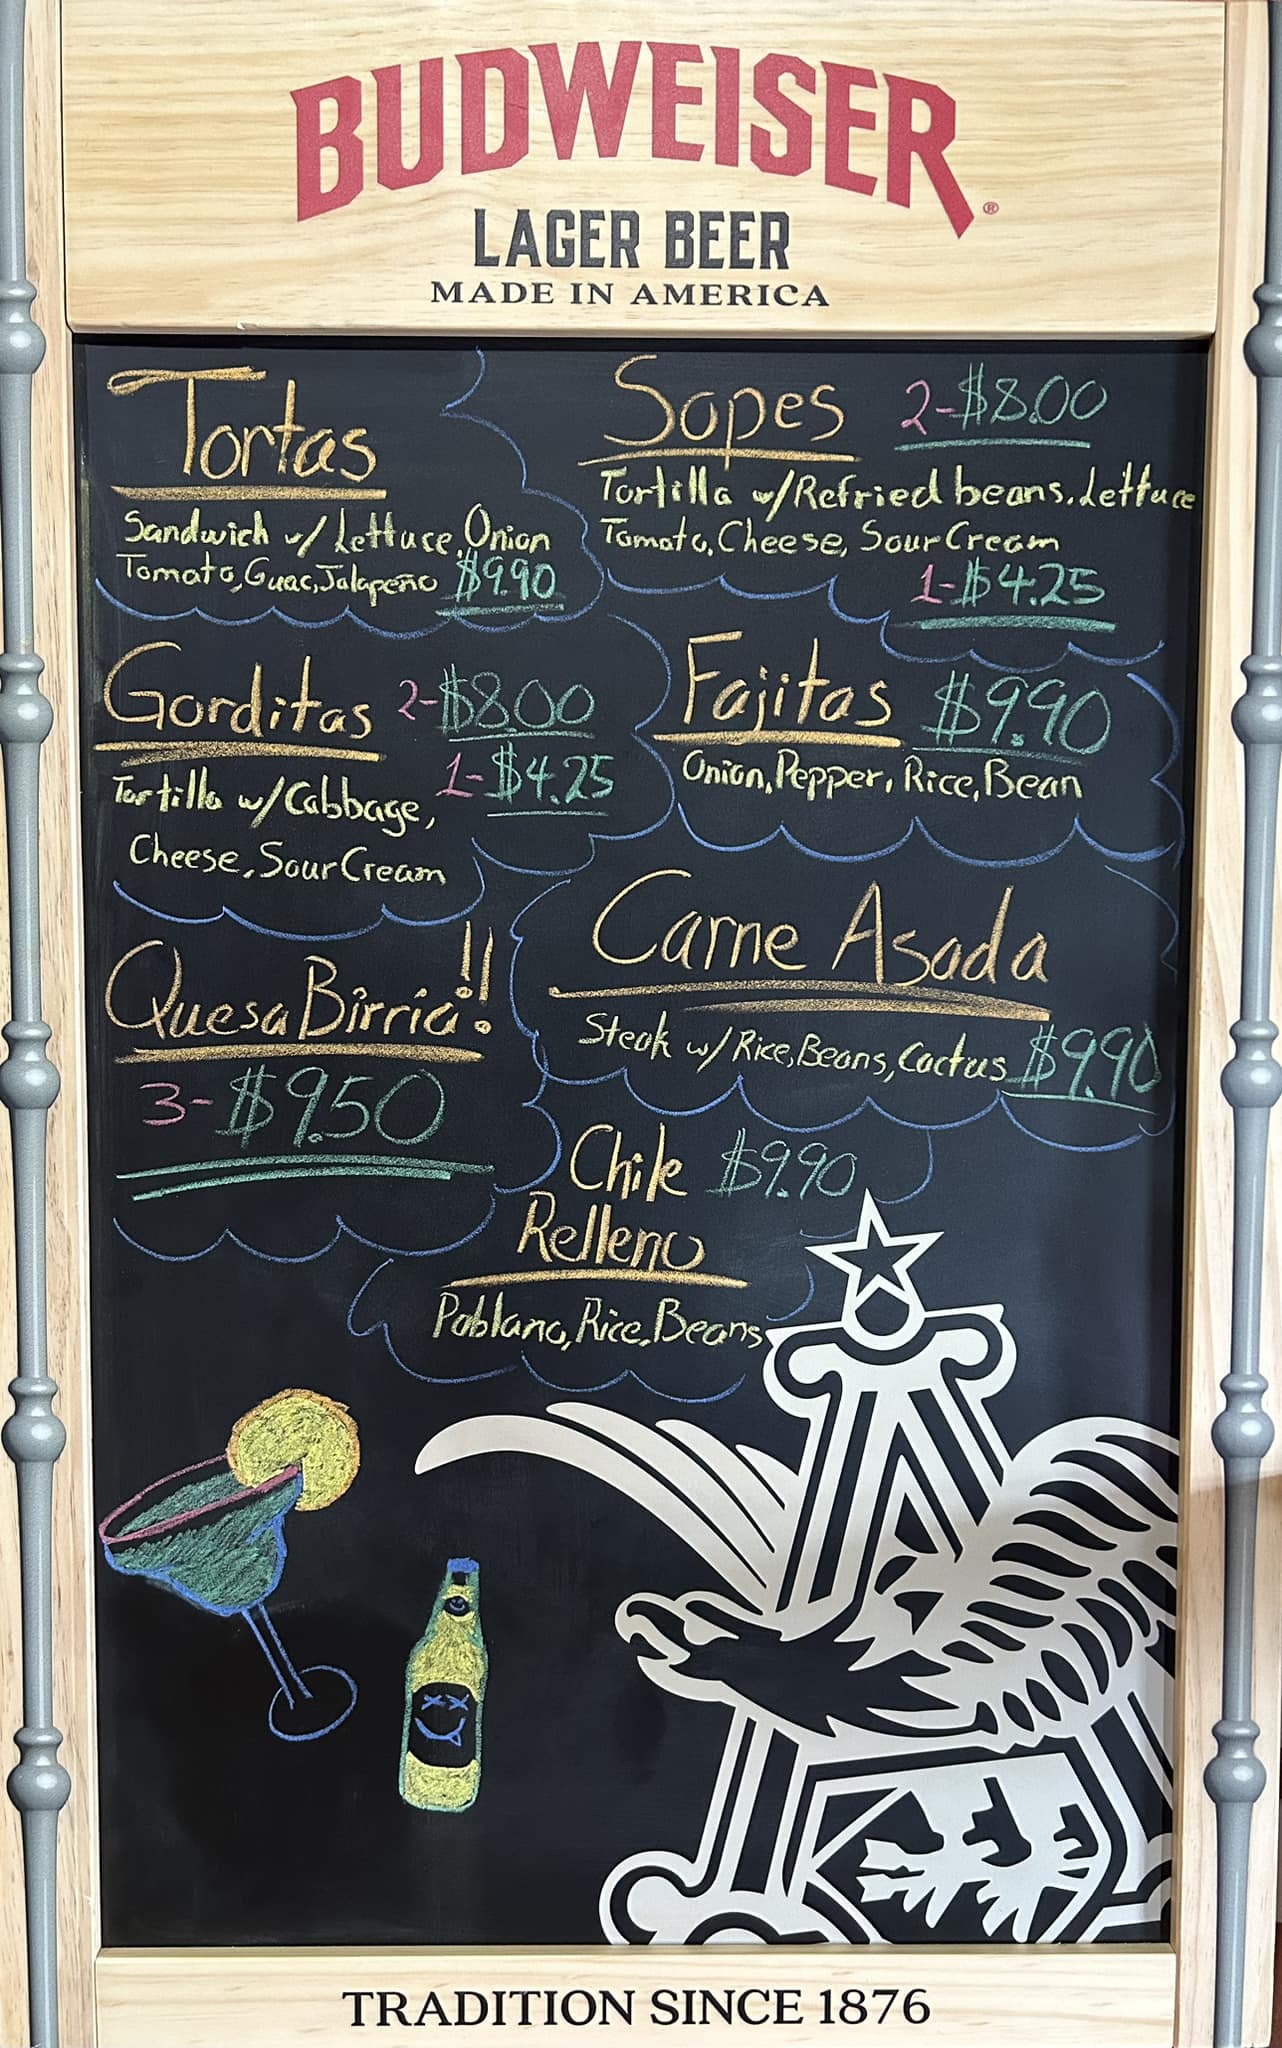 BUDWEISER®
LAGER BEER
MADE IN AMERICA
Tortas
Sandwich w/ Lettuce, Onion
Tomato, Guac, Jalapeño $9.90
Sopes 2-$8.00
Tortilla w/Refried beans, Lettuce
Tomato, Cheese, Sour Cream
1-$4.25
Gorditas 2-$8.00
1-$4.25
Tortilla w/Cabbage,
Cheese, Sour Cream
Fajitas $9.90
Onion, Pepper, Rice, Bean
Quesa Birria!!
3-$9.50
Carne Asada
Steak w/ Rice, Beans, Cactus $9.90
Chile $9.90
Relleno
Poblano, Rice, Beans
TRADITION SINCE 1876